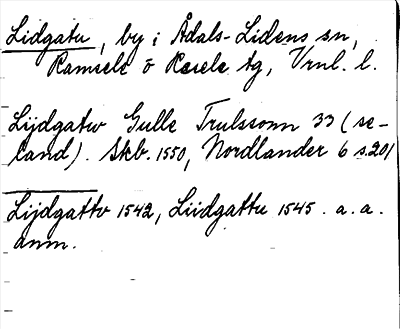 Lidgatu, by i Ådals-Lidens sn,
Ramsele o Resele tg, Vrnl. l.
Lijdgatw Gulle Trulssonn 33 (se-
land). Skb. 1550, Nordlander 6 s. 201
Lijdgattv 1542, Liidgattu 1545. a. a.
anm.